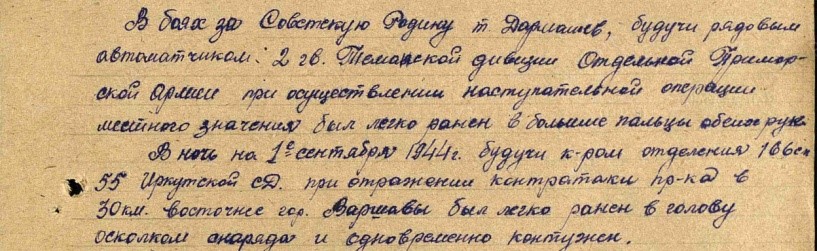 В боях за Советскую Родину т. Дармашев, будучи рядовым
автоматчиком 2 гв. Таманской дивизии Отдельной Примор-
ской Армии при осуществлении наступательной операции
местного значения был легко ранен в большие пальцы обеих рук.
В ночь на 1е сентября 1944 г. будучи к-ром отделения
55 Иркутской сД. при отражении контратаки пр-ка в
30 км. восточнее гор. Варшавы был легко ранен в голову
осколком снаряда и одновременно контужен.